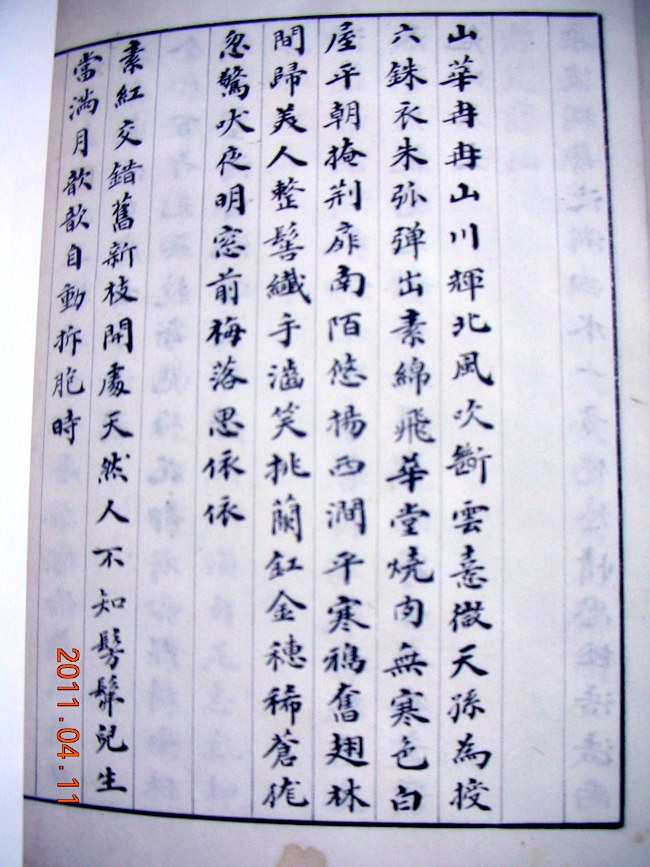 山華冉冉山川輝北風吹斷雲意微天孫為授
六銖衣朱弧彈出素綿飛華堂燒肉無寒色白
屋平朝掩荆扉南陌悠揚西澗平寒鴉奮翅林
間歸美人整髻纖手濇笑挑蘭釭金穗稀蒼狵
忽驚吠夜明窓前梅落思依依
素紅交錯舊新枝開處天然人不知髣髴兒生
當満月歆歆自動拆胞時
2011.04.11